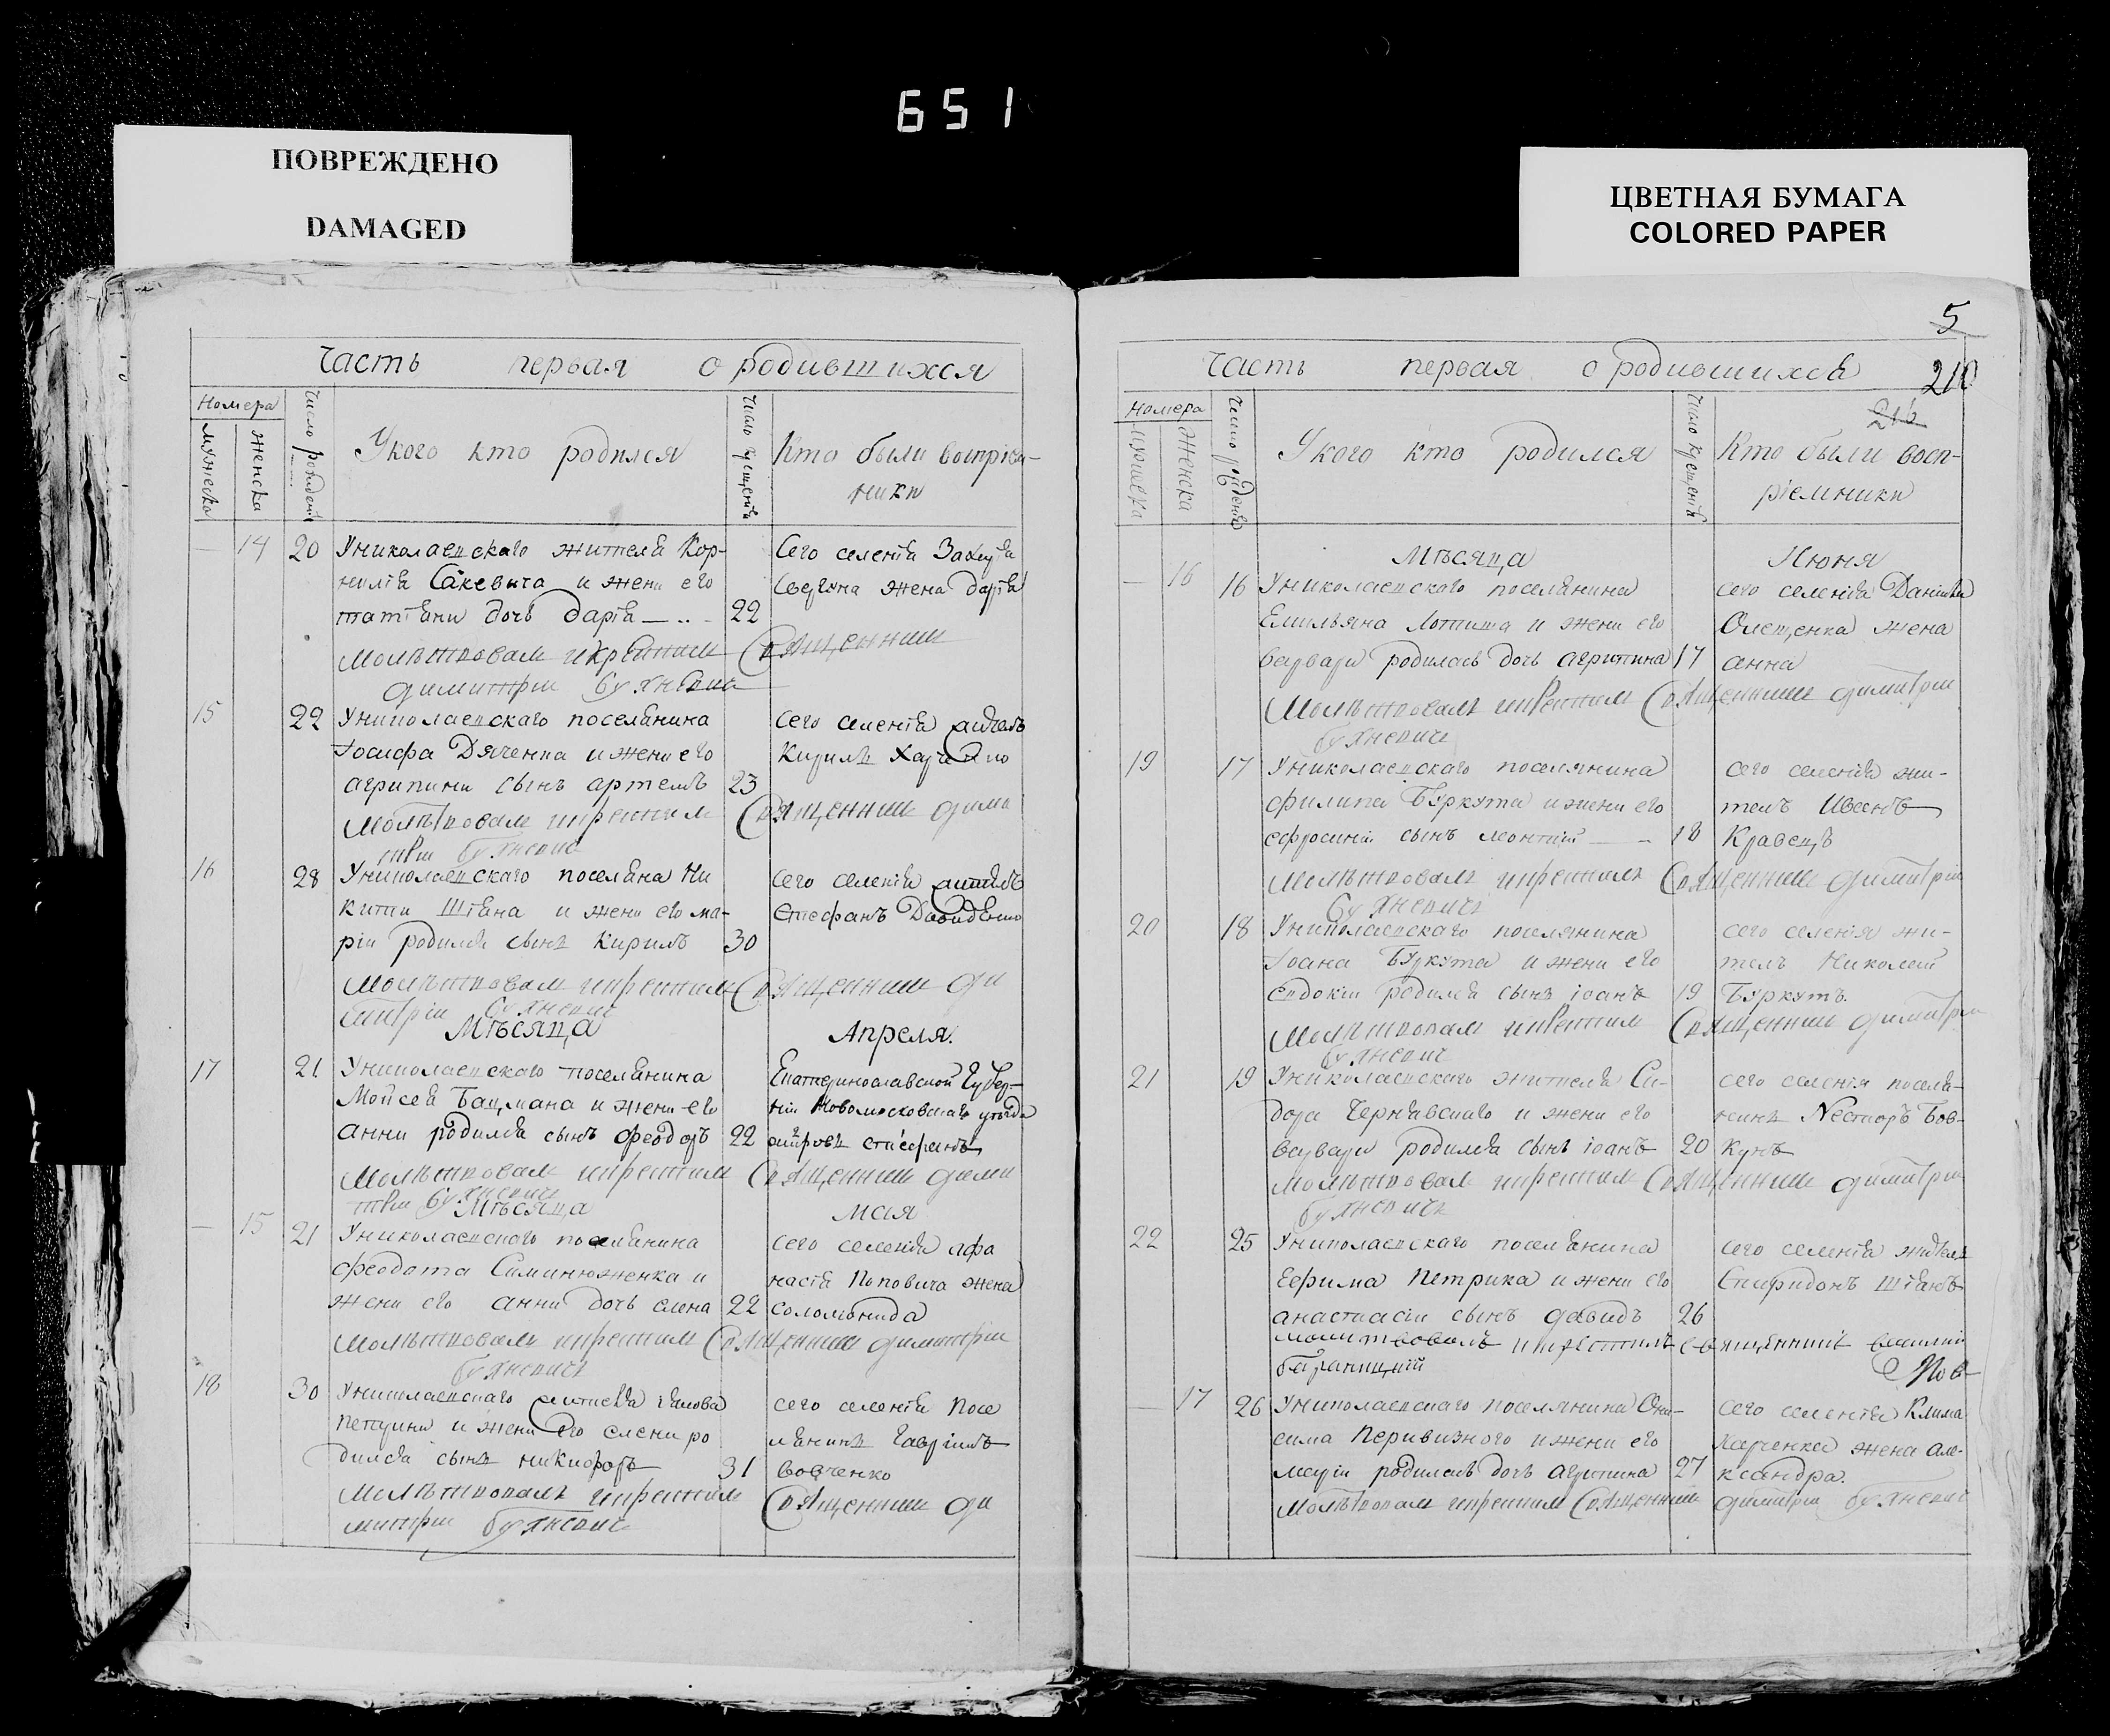 651
ПОВРЕЖДЕНО
DAMAGED
ЦВЕТНАЯ БУМАГА
COLORED PAPER
Часть первая о родившихся
Номера
мужеска
женска
Число рождения
У кого кто родился
Число крещенія
Кто были воспріем-
ники
— 14 20 Униколаевскаго жителя Кор-
нилія Сакевича и жени его
татіяни дочь дарія 22
Сего селенія
жена дарія
Молитвовалъ икрестилъ Священникъ
димитрій Бухневичъ
15 22 Униколаевскаго поселянина
Іосифа Дяченка и жени его
агрипини сынъ артемъ 23
сего селенія житель
Кирилъ
Молитвовалъ икрестилъ Священникъ дими
трій Бухневичъ
16 28 Униколаевскаго поселяна Ни
кити Штана и жени его ма-
ріи родился сынъ Кирилъ 30
сего селенія житель
Стефанъ Давиденко
Молитвовалъ икрестилъ Священникъ ди
митрій Бухневичъ
Мѣсяца Апреля.
17 21 Униколаевскаго поселянина
Мойсея Бацмана и жени его
анни родился сынъ феодоръ 22
Екатеринославской Губер-
ніи Новомосковскаго уѣзда
стефанъ
Молитвовалъ икрестилъ Священникъ дими
трій Бухневичъ
Мѣсяца мая
— 15 21 Униколаевскаго поселянина
феодота и
жени его анни дочь елена 22
сего селенія Афа
насія Поповича жена
соломонида
Молитвовалъ икрестилъ Священникъ димитрій
Бухневичъ
18 30 Униколаевскаго жителя
и жени его елени ро
дился сынъ никифоръ 31
сего селенія Посе
лянинъ Гавріилъ
вовченко
Молитвовалъ икрестилъ Священникъ ди
митрій Бухневичъ
5
210
216
Часть первая о родившихся
Номера
мужеска
женска
Число рожденія
У кого кто родился
Число крещенія
Кто были восп-
ріемники
Мѣсяца Июня
— 16 16 Униколаевского поселянина
Емильяна и жени его
варвари родилась дочь агрипина 17
сего селенія Даніила
Олещенка жена
анна
Молитвовалъ икрестилъ Священникъ димитрій
Бухневичъ
19 17 Униколаевскаго поселянина
филипа Буркута и жени его
ефросиніи сынъ леонтій 18
сего селенія жи-
тель Иванъ
Кравецъ
Молитвовалъ икрестилъ Священникъ димитрій
Бухневичъ
20 18 Униколаевскаго поселянина
Іоана Буркута и жени его
евдокіи родился сынъ іоанъ 19
сего селенія жи-
тель Николай
Буркутъ.
Молитвовалъ икрестилъ Священникъ димитрій
Бухневичъ
21 19 Униколаевскаго жителя Си-
дора Чернявскаго и жени его
варвари родился сынъ іоанъ 20
сего селенія поселя-
нинъ Несторъ Бов-
кунъ
Молитвовалъ икрестилъ Священникъ димитрій
Бухневичъ
22 25 Униколаевскаго поселянина
Ефима Петрика и жени его
анастасіи сынъ давидъ 26
сего селенія житель
Спиридонъ Штанъ
молитвовалъ икрестилъ священникъ василий
Пов-
— 17 26 Униколаевскаго поселянина Они-
сима Перивизного и жени его
маріи родилась дочь агрипина 27
сего селенія Клима
Харченка жена але-
ксандра.
Молитвовалъ икрестилъ Священникъ димитрій Бухневичъ